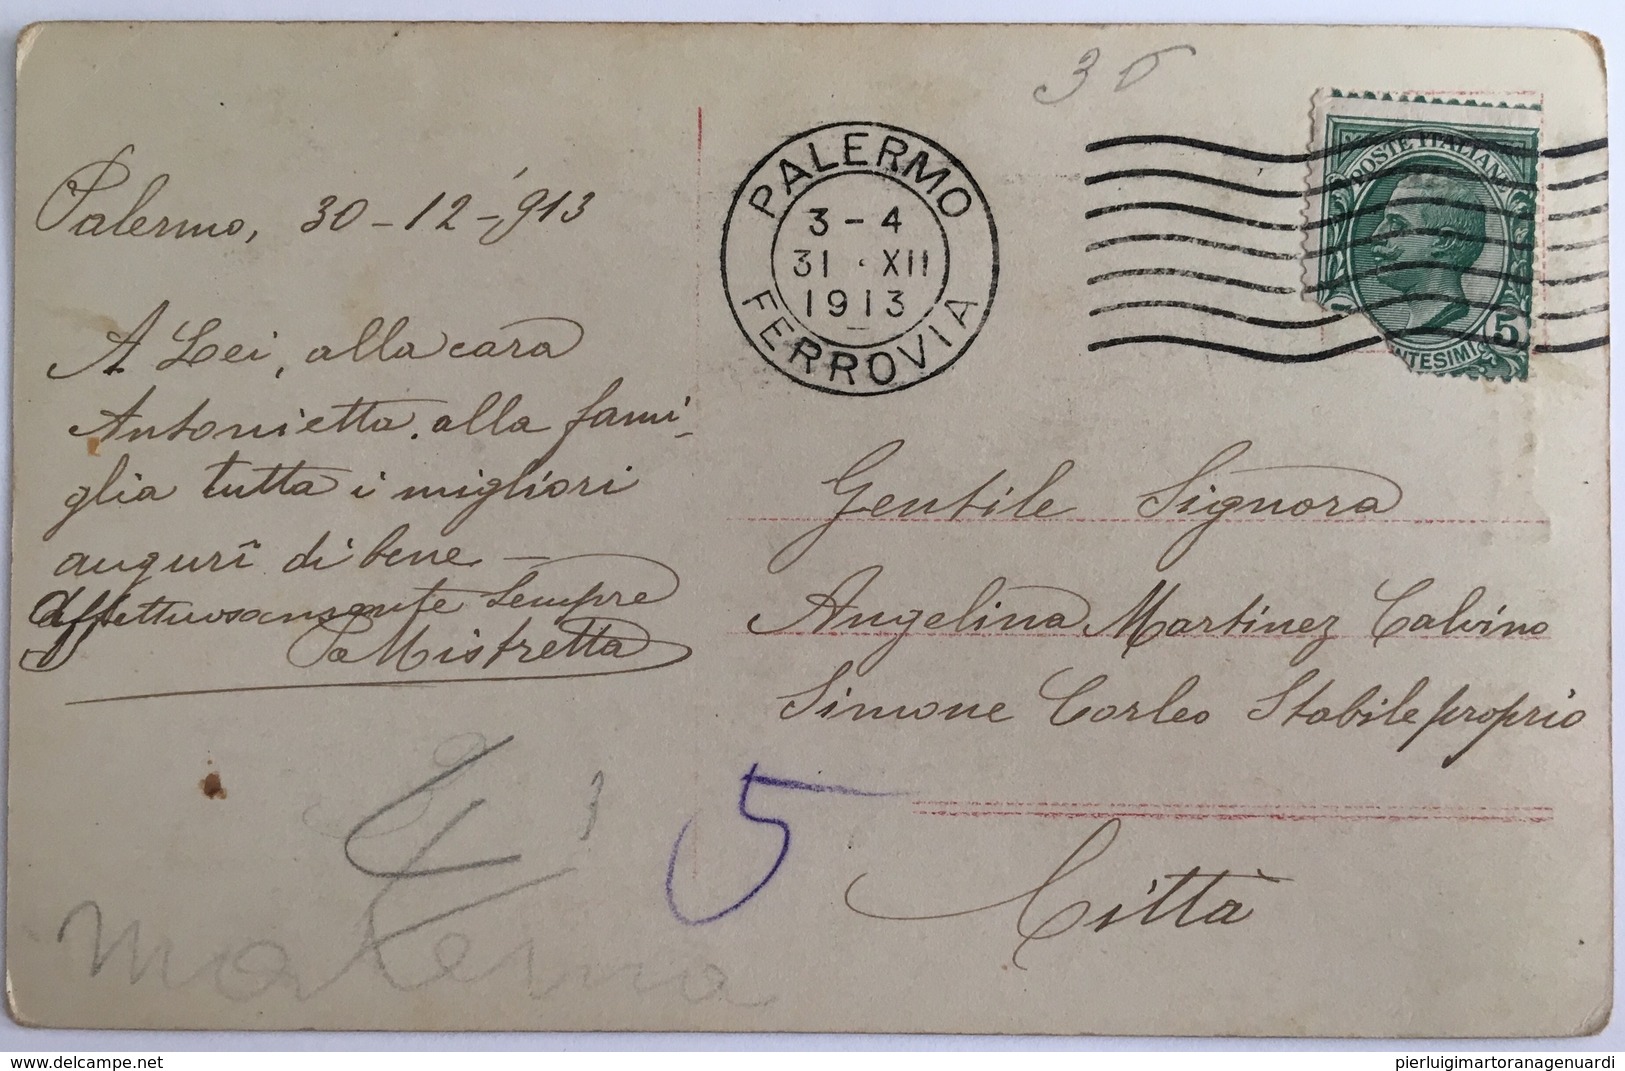 Palermo, 30-12-'913
A Lei, alla cara
Antonietta, alla fami-
glia tutta i migliori
auguri di bene —
affettuosamente sempre
Mistretta
PALERMO
3-4
31 · XII
1913
FERROVIA
POSTE ITALIANE
5
NTESIMI
Gentile Signora
Angelina Martinez Calvino
Simone Corleo Stabile proprio
Città
5
materna
delcampe.net
pierluigimartoranagenuardi